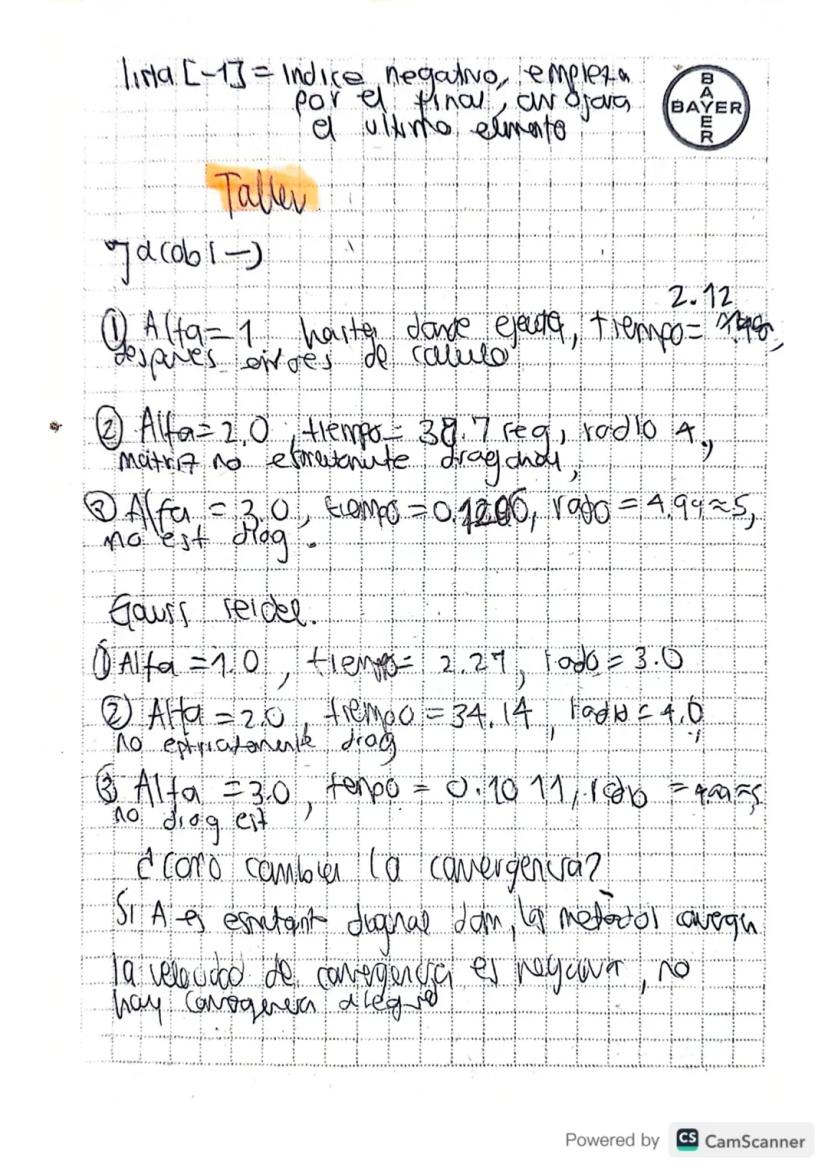 lista [-1] = Indice negativo, empieza
por el final, arrojara
el ultimo elemento
BAYER
BAYER
Taller
Jacobi -)
2.12
① Alfa = 1 hasta donde ejecuta, tiempo =
despues errores de calculo
② Alfa = 2.0, tiempo = 38.7 seg, radio 4.,
matriz no estrictamente diagonal,
③ Alfa = 3.0, tiempo = 0.1206, radio = 4.99 ≈ 5,
no est diag.
Gauss seidel.
① Alfa = 1.0, tiempo = 2.27, radio = 3.0
② Alfa = 2.0, tiempo = 34.14, radio = 4.0
no estrictamente diag
③ Alfa = 3.0, tempo = 0.1011, radio = 4.99 ≈ 5
no diag est
¿Cómo cambia la convergencia?
Si A es diagonal dom, los metodos
la velocidad de convergencia es, no
hay convergencia
Powered by CS CamScanner